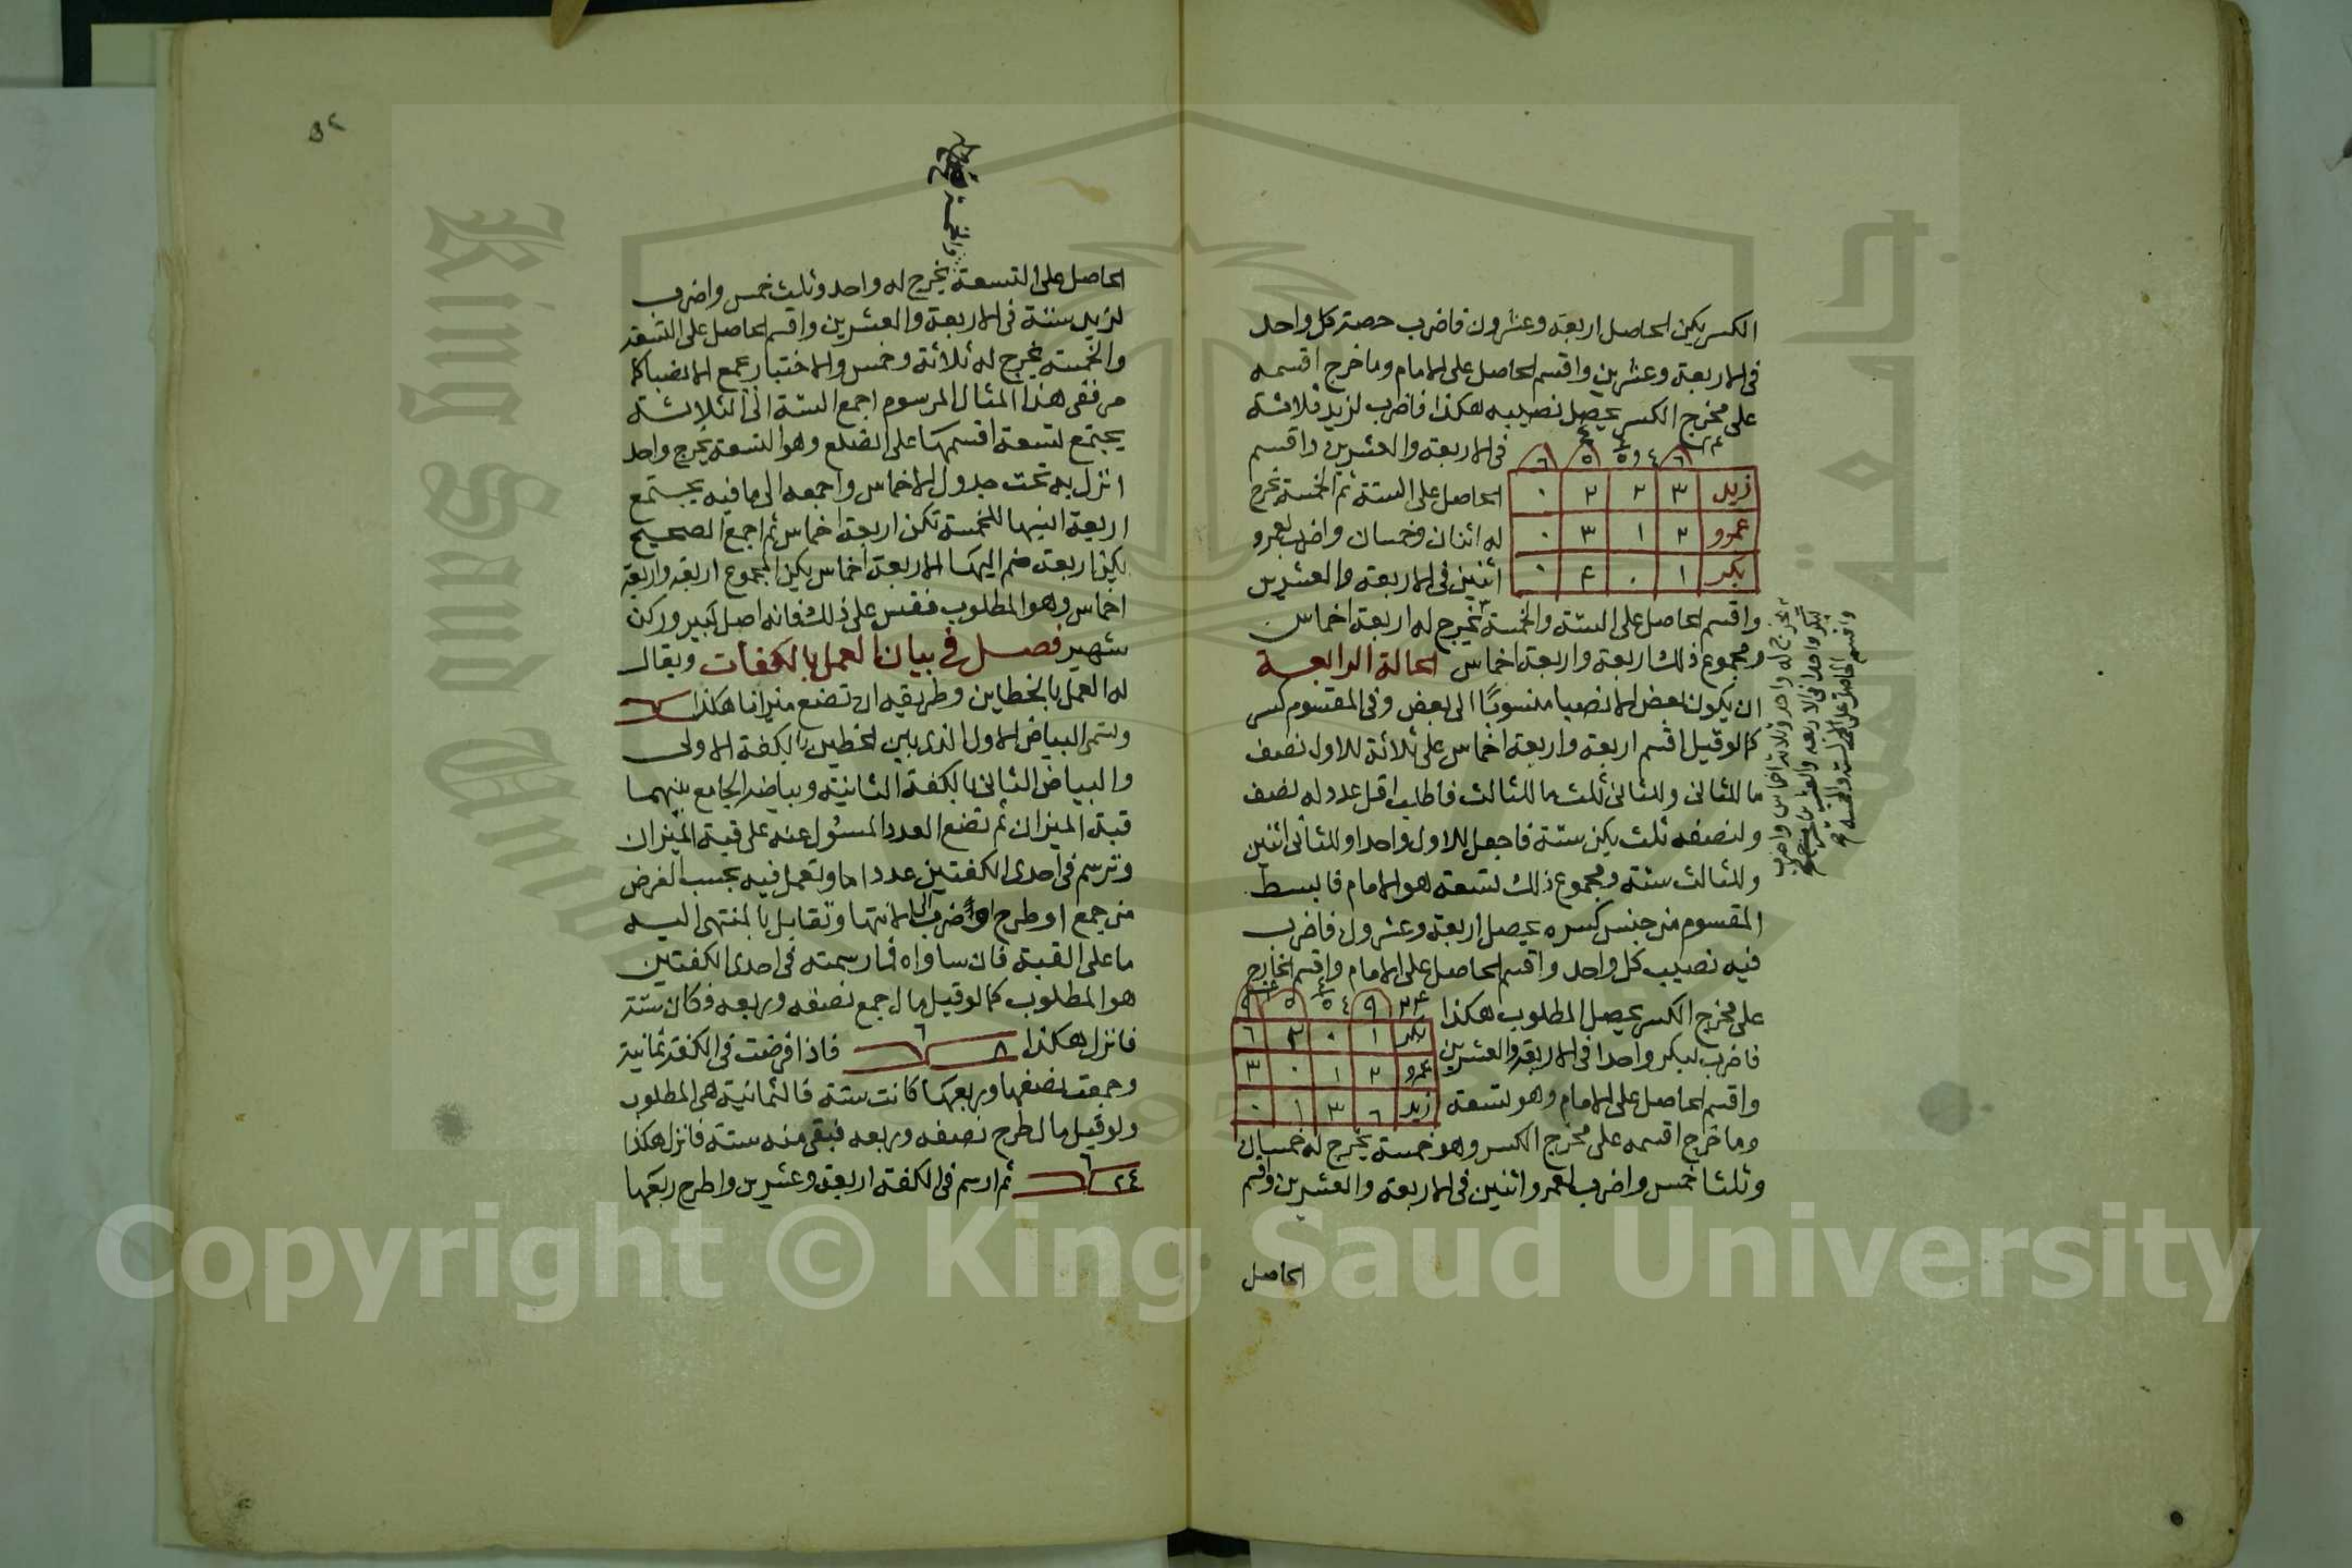 الكسر يكن الحاصل اربعة وعشرون فاضرب حصة كل واحد
في الاربعة وعشرين واقسم الحاصل على الامام وما خرج اقسمه
على مخرج الكسر يحصل نصيبه هكذا فاضرب لزيد ثلاثة
في الاربعة والعشرين واقسم
الحاصل على الستة ثم الخمسة يخرج
له اثنان وخمسان واضرب لعمرو
اثنين في الاربعة والعشرين
زيد ٣ ٢ ٢ ٠
عمرو ٢ ١ ٣ ٠
بكر ١ ٠ ٤ ٠
واقسم الحاصل على الستة والخمسة يخرج له اربعة اخماس
ومجموع ذلك اربعة واربعة اخماس الحالة الرابعة
ان يكون بعض الانصبا منسوبًا الى بعض وفي المقسوم كسر
كما لو قيل اقسم اربعة واربعة اخماس على ثلاثة للاول نصف
ما للثاني وللثاني ثلث ما للثالث فاطلب اقل عدد له نصف
ولنصفه ثلث يكن ستة فاجعل للاول واحدا وللثاني اثنين
وللثالث ستة ومجموع ذلك تسعة هو الامام فابسط
المقسوم من جنس كسره يحصل اربعة وعشرون فاضرب
فيه نصيب كل واحد واقسم الحاصل على الامام واقسم الخارج
على مخرج الكسر يحصل المطلوب هكذا
فاضرب لبكر واحدا في الاربعة والعشرين
واقسم الحاصل على الامام وهو تسعة
بكر ١ ٠ ٢ ٦
عمرو ٢ ١ ٠ ٣
زيد ٦ ٣ ١ ٠
وما خرج اقسمه على مخرج الكسر وهو خمسة يخرج له خمسان
وثلثا خمس واضرب لعمرو اثنين في الاربعة والعشرين واقسم
الحاصل
يخرج له واحد وثلاثة اخماس واضرب
لبكر واحدا في الاربعة والعشرين
واقسم الحاصل على الستة والخمسة
٥٢
والخمسة
الحاصل على التسعة يخرج له واحد وثلث خمس واضرب
لزيد ستة في الاربعة والعشرين واقسم الحاصل على التسعة
والخمسة يخرج له ثلاثة وخمس والاختبار بجمع الانصبا كما
مر ففي هذا المثال المرسوم اجمع الستة الى الثلاثة
يجتمع تسعة اقسمها على الضلع وهو التسعة يخرج واحد
انزل به تحت جدول الاخماس واجمعه الى ما فيه يجتمع
اربعة انسبها للخمسة تكن اربعة اخماس ثم اجمع الصحيح
يكن اربعة ضم اليها الاربعة اخماس يكن المجموع اربعة واربعة
اخماس وهو المطلوب فقس على ذلك فانه اصل كبير وركن
شهير فصل في بيان العمل بالكفات ويقال
له العمل بالخطاين وطريقه ان تضع ميزانا هكذا
وتسمى البياض الاول الذي بين الخطين بالكفة الاولى
والبياض الثاني بالكفة الثانية وبياض الجامع بينهما
قبة الميزان ثم تضع العدد المسئول عنه على قبة الميزان
وترسم في احدى الكفتين عددا ما وتعمل فيه بحسب الفرض
من جمع او طرح او ضرب الى الانتها وتقابل بالمنتهى اليه
ما على القبة فان ساواه فما رسمته في احدى الكفتين
هو المطلوب كما لو قيل مال جمع نصفه وربعه فكان ستة
فانزل هكذا ٨ ٦ فاذا فرضت في الكفة ثمانية
وجمعت نصفها وربعها كانت ستة فالثمانية هي المطلوب
ولو قيل مال طرح نصفه وربعه فبقي منه ستة فانزل هكذا
٢٤ ٦ ثم ارسم في الكفة اربعة وعشرين واطرح ربعها
King Saud University
Copyright © King Saud University